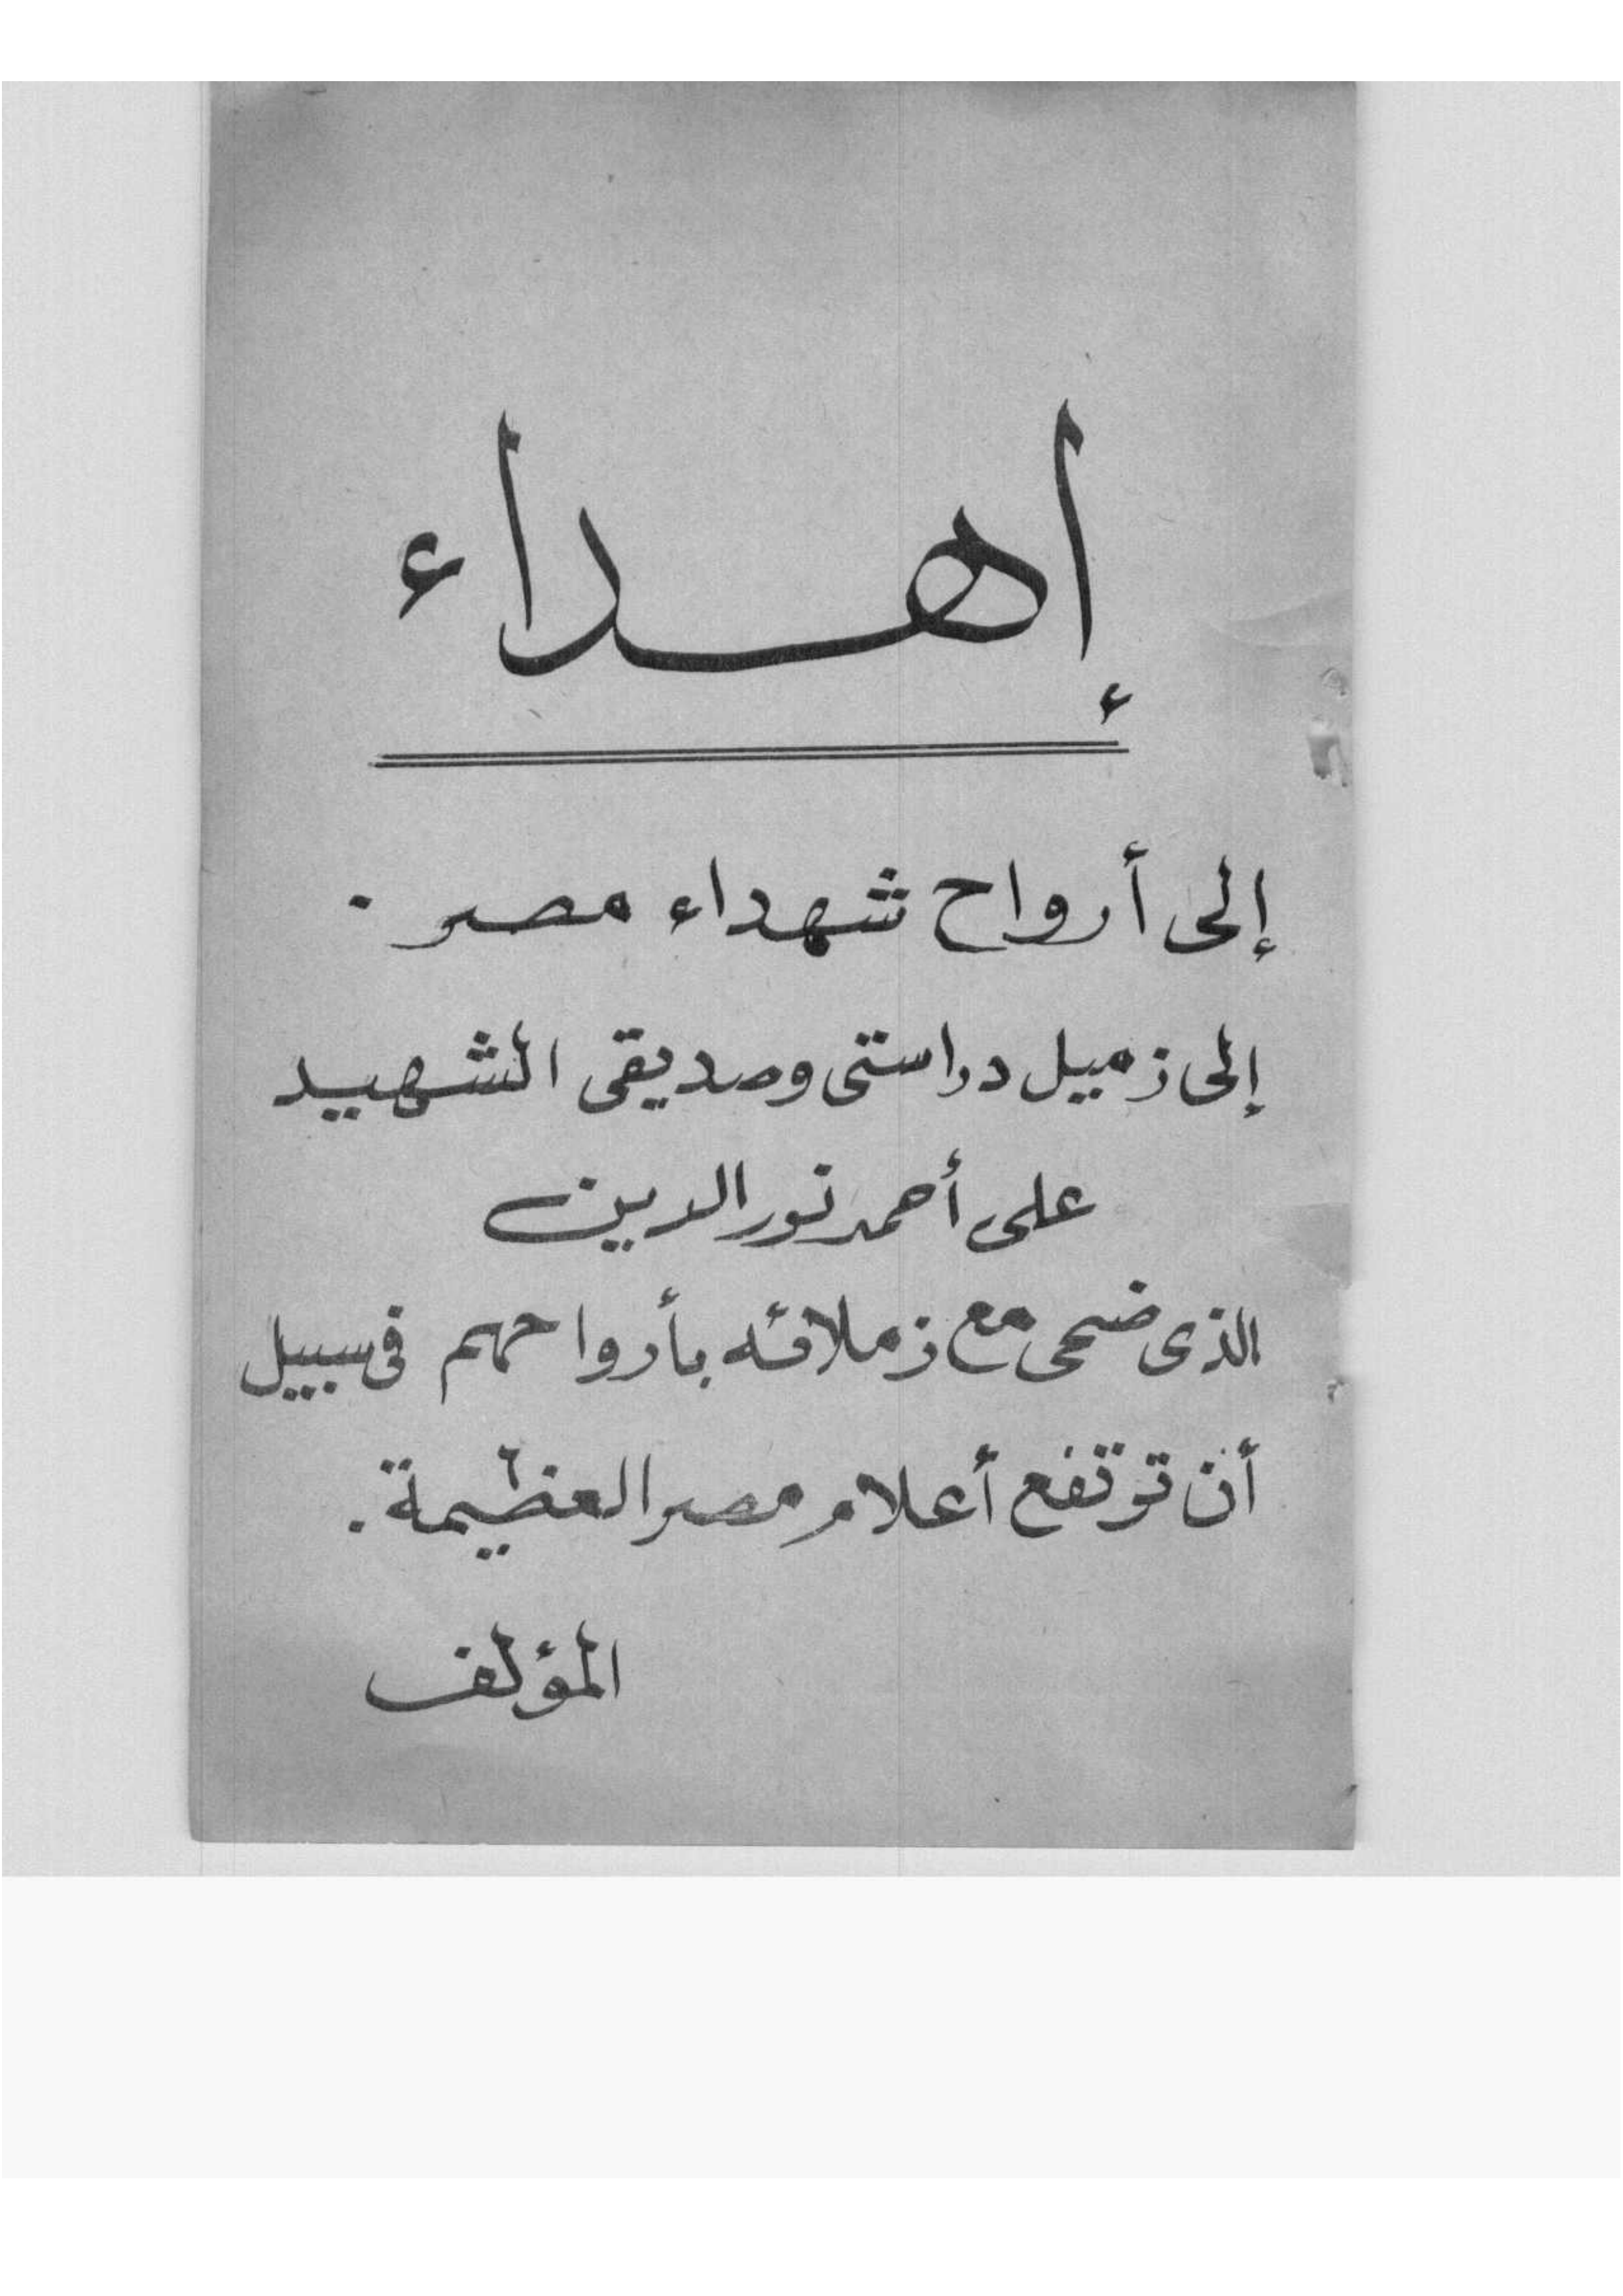 إهداء
إلى أرواح شهداء مصر .
إلى زميل دراستى وصديقى الشهيد
على أحمد نور الدين
الذى ضحى مع زملائه بأرواحهم فى سبيل
أن ترتفع أعلام مصر العظيمة .
المؤلف